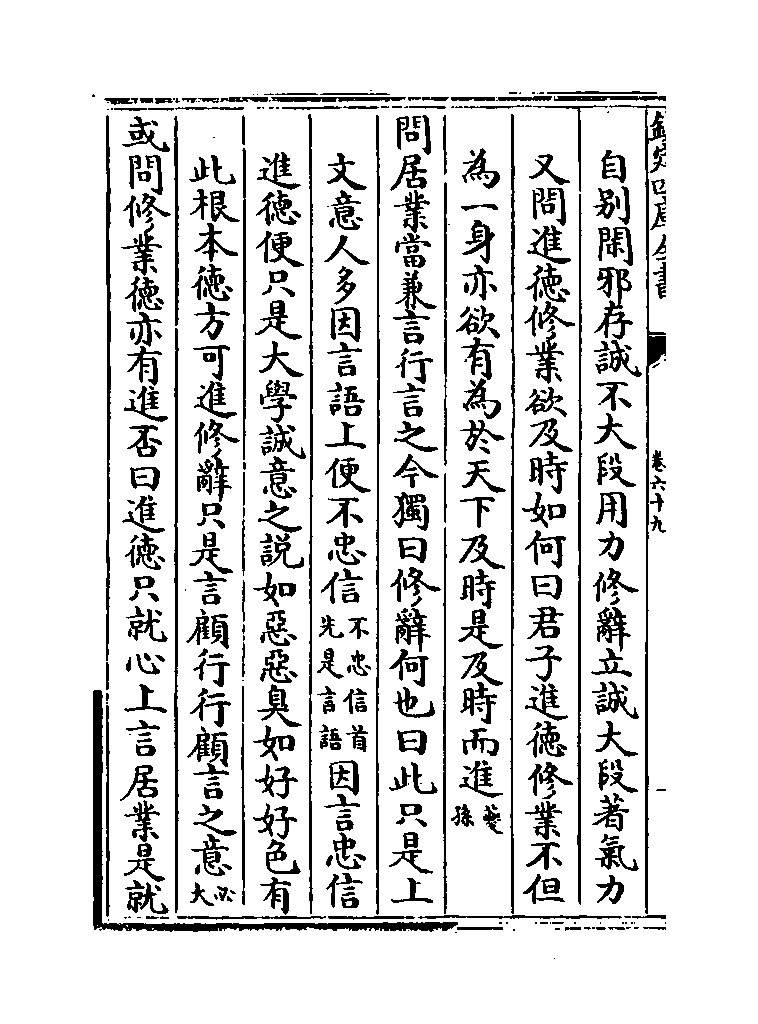 欽定四庫全書
卷六十九
自别閑邪存誠不大段用力修辭立誠大段著氣力
又問進徳修業欲及時如何曰君子進徳修業不但
為一身亦欲有為於天下及時是及時而進䕫孫
問居業當兼言行言之今獨曰修辭何也曰此只是上
文意人多因言語上便不忠信不忠信首先是言語因言忠信
進徳便只是大學誠意之説如惡惡臭如好好色有
此根本徳方可進修辭只是言顧行行顧言之意必大
或問修業徳亦有進否曰進徳只就心上言居業是就